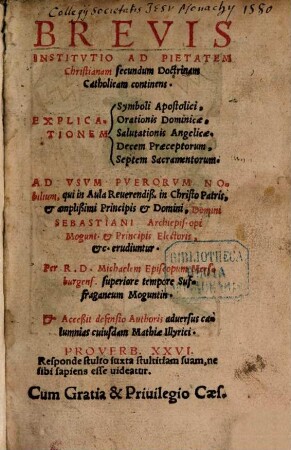 Collegij Societatis JESV Monachy 1550
BREVIS
INSTITVTIO AD PIETATEM
Christianam secundum Doctrinam
Catholicam continens.
EXPLICA-
TIONEM
Symboli Apostolici.
Orationis Dominicæ.
Salutationis Angelicæ.
Decem Præceptorum.
Septem Sacramentorum.
AD VSVM PVERORVM NO-
bilium, qui in Aula Reuerendiß. in Christo Patris,
& amplißimi Principis & Domini, Domini
SEBASTIANI Archiepiscopi
Mogunt. & Principis Electoris,
&c. erudiuntur.
Per R. D. Michaelem Episcopum Mers-
burgens. superiore tempore Suf-
fraganeum Moguntin.
Acceßit defensio Authoris aduersus ca-
lumnias cuiusdam Mathiæ Illyrici.
PROVERB. XXVI.
Responde stulto iuxta stultitiam suam, ne
sibi sapiens esse uideatur.
Cum Gratia & Priuilegio Cæs.
BIBLIOTHECA